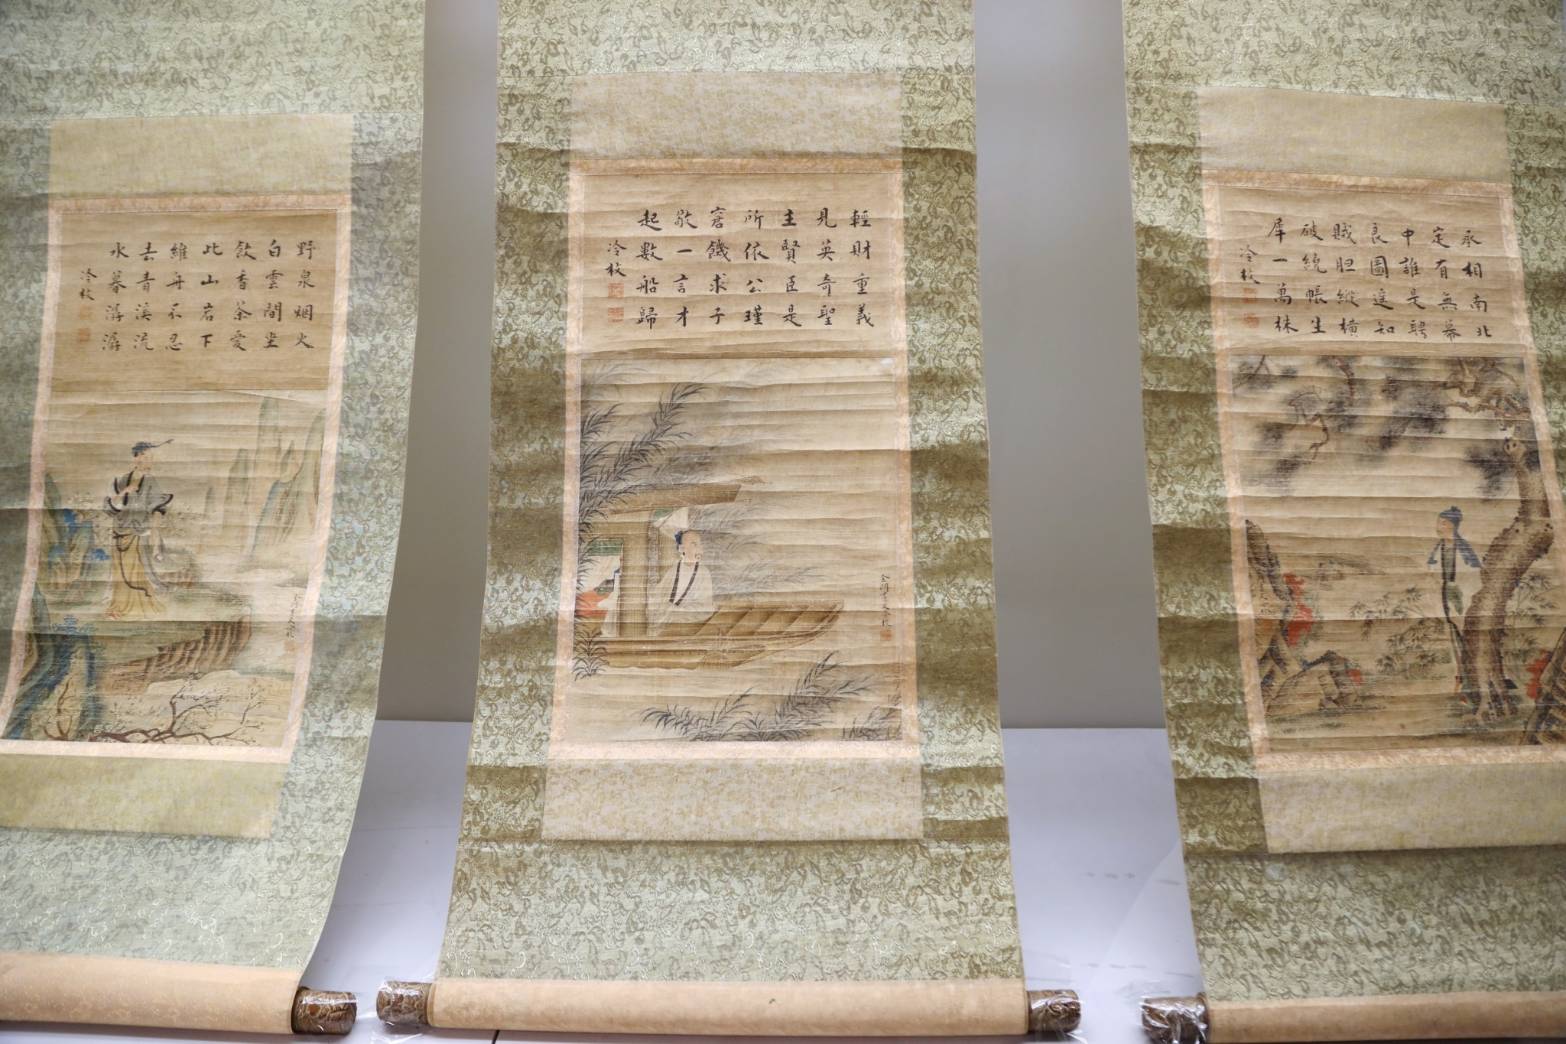 野泉烟火
白雲間坐
飲香茶愛
此山岩下
維舟不忍
去青溪流
水暮潺潺
冷枚
輕財重義
見英奇聖
主賢臣是
所依公瑾
窘饑求子
敬一言才
起數船歸
冷枚
丞相南北
定有無幕
中誰是騁
良圖達知
賊胆縱橫
破繞帳生
犀一萬株
冷枚